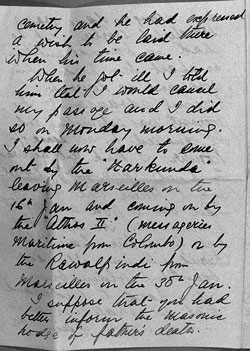 cemetry, and he had expressed
a wish to be laid there
when his time came.
When he got ill I told
him that I would cancel
my passage and I did
so on Monday morning.
I shall now have to come
out by the "Narkunda"
leaving Marseilles on the
16th Jan and coming on by
the "Athos II" (Messageries
Maritime from Colombo) or by
the Rawalpindi from
Marseilles on the 30th Jan.
I suppose that you had
better inform the Masonic
Lodge of father's death.